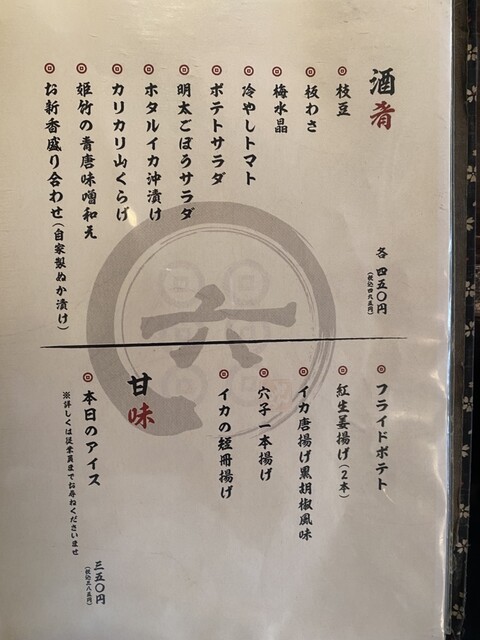 酒肴
枝豆
板わさ
梅水晶
冷やしトマト
ポテトサラダ
明太ごぼうサラダ
ホタルイカ沖漬け
カリカリ山くらげ
姫竹の青唐味噌和え
お新香盛り合わせ(自家製ぬか漬け)
各 四五〇円
(税込四九五円)
フライドポテト
紅生姜揚げ(2本)
イカ唐揚げ黒胡椒風味
穴子一本揚げ
イカの短冊揚げ
甘味
本日のアイス
※詳しくは従業員までお尋ねくださいませ
三五〇円
(税込三八五円)
六